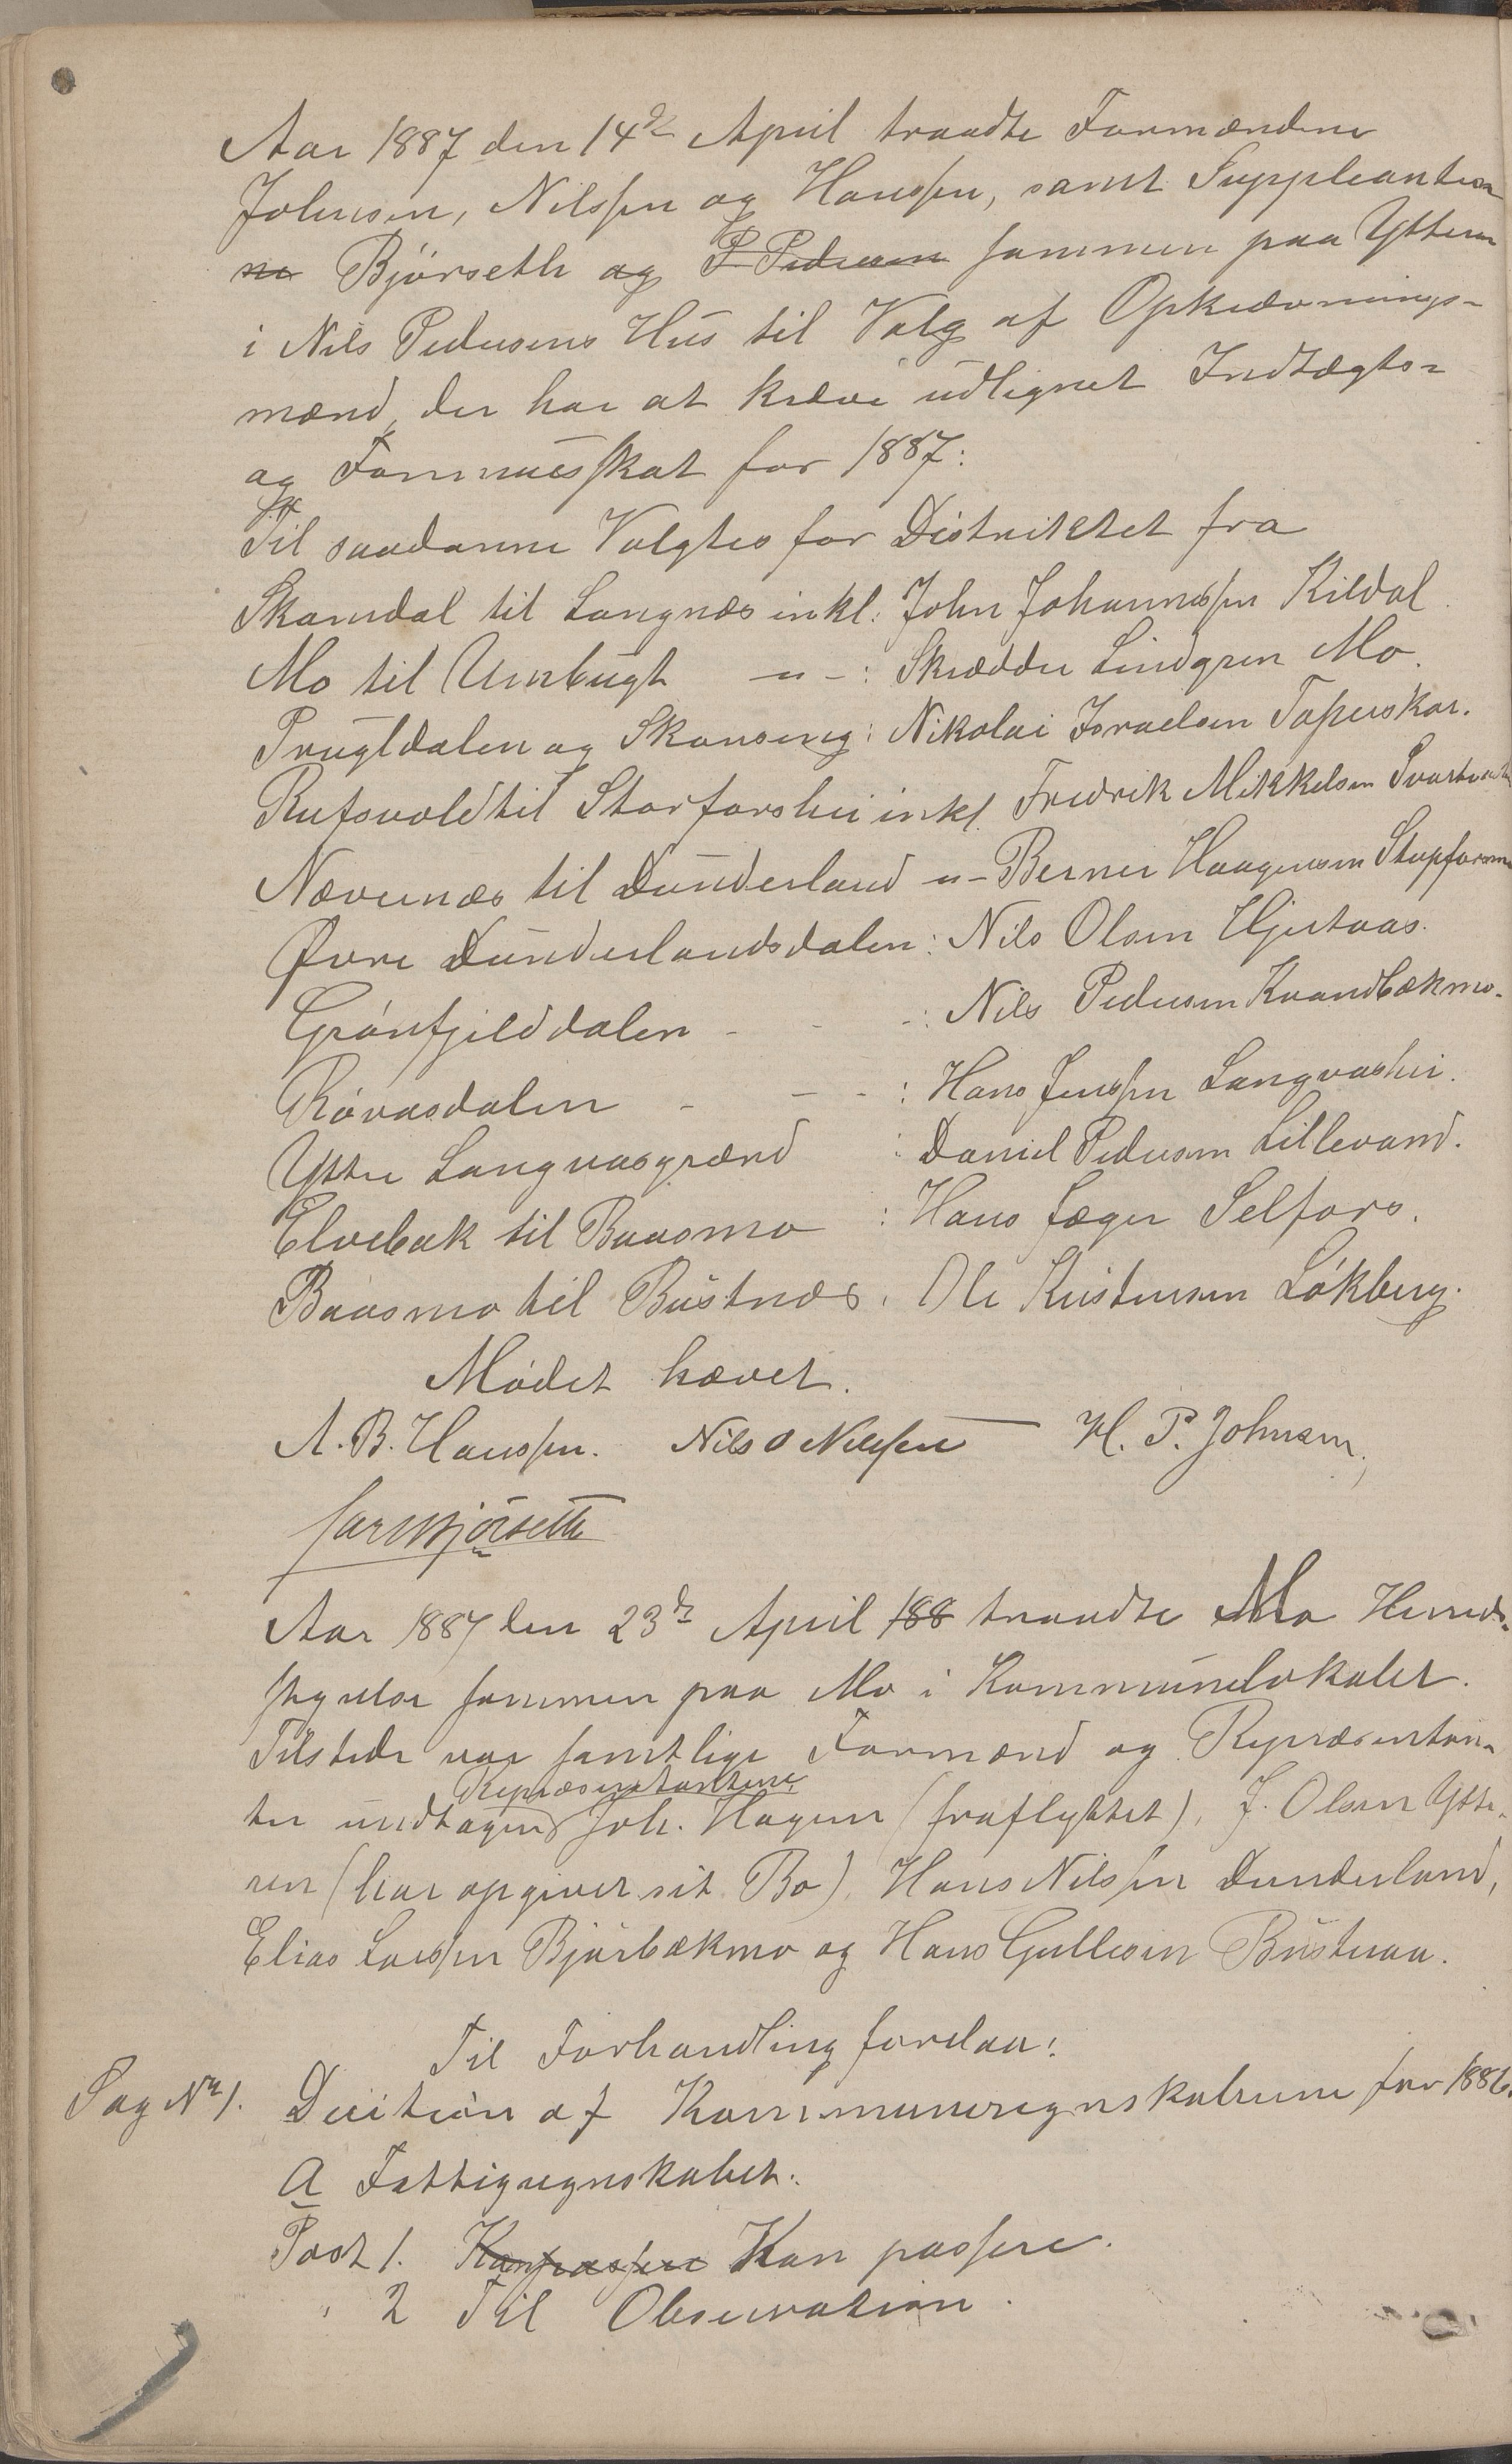 Aar 1887 den 14de April traadte Formændene
Johnsen, Nilsſen og Hansſen, samt Suppleanten
ne Björseth og P Pedersen ſammen paa Ytteren
i Nils Pedersens Hus til Valg af Opkrævnings-
mænd, der har at kræve udlignet Indtægts-
og Formuesſkat for 1887:
Til saadanne Valgtes for Distriktet fra
Skamdal til Langnæs inkl: John Johannesſen Kildal.
Mo til Umbugt -"-: Skrædder Lindgren Mo.
Prugldalen og Skonseng: Nikolai Israelsen Tapeskar.
Rufsvold til Storforshei inkl. Fredrik Mikkelsen
Nævernæs til Dunderland -"- Berner Haagensen Stupforsmo
Øvre Dunderlandsdalen: Nils Olsen Hjertaas.
Grönfjelddalen - - -: Nils Pedersen Kvandbækmo.
Rövasdalen - - -: Hans Jensſen Langvashei.
Yttre Langvasgrænd : Daniel Pedersen Lillevand.
Elvebak til Baasmo : Hans Jæger Selfors.
Baasmo til Bustnæs. Ole Kristensen Lökberg.
Mödet hævet.
A. B. Hansſen. Nils O Nilsſen H. P. Johnsen,
Lars Björseth
Aar 1887 den 23de April 188 traadte Mo Herreds-
ſtyrelse ſammen paa Mo i Kommunelokalet.
Tilstede var ſamtlige Formænd og Repræsentan-
Repræsentanterne
ter undtagen Joh. Hagen (fraflyttet), J. Olsen Ytte-
ren (har opgivet sit Bo), Hans Nilsſen Dunderland,
Elias Larsſen Bjørbækmo og Hans Gullesen Bustnaa.
Til Forhandling forelaa:
Sag No 1. Decition af Kommuneregnskaberne for 1886.
A Fattigregnskabet.
Post 1. Kan pasſere Kan pasſere.
" 2 Til Observation.